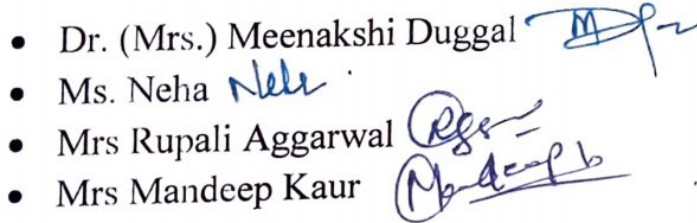 • Dr. (Mrs.) Meenakshi Duggal
• Ms. Neha Neha
• Mrs Rupali Aggarwal
• Mrs Mandeep Kaur Mandeep k